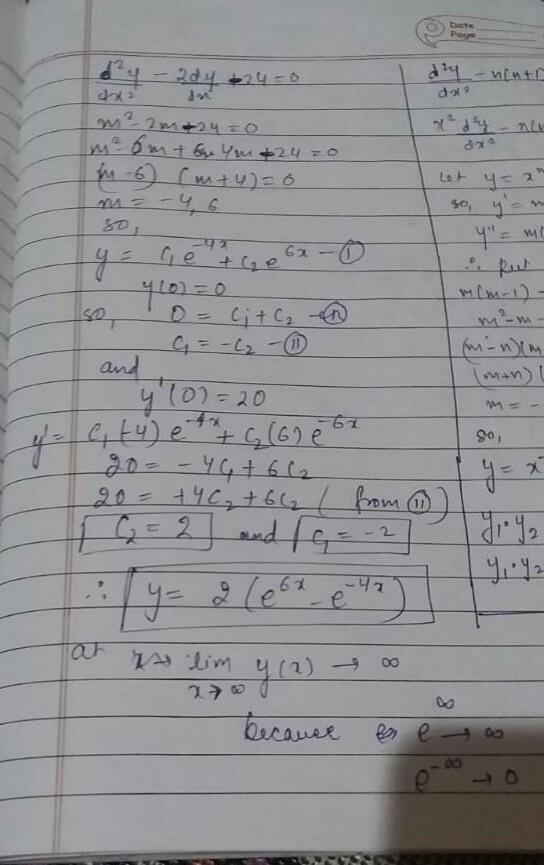 Date
Page
d²y/dx² - 2dy/dx - 24 = 0
m² - 2m - 24 = 0
m² - 6m + 4m - 24 = 0
(m-6) (m+4) = 0
m = -4, 6
so,
y = c₁e^{-4x} + c₂e^{6x} - ①
y(0) = 0
so, 0 = c₁ + c₂ - ⑪
c₁ = -c₂ - ⑪
and
y'(0) = 20
y' = c₁(-4) e^{-4x} + c₂(6) e^{-6x}
20 = -4c₁ + 6c₂
20 = +4c₂ + 6c₂ ( from ⑪)
c₂ = 2 and c₁ = -2
∴ y = 2 (e^{6x} - e^{-4x})
at x→ lim y(x) → ∞
x→∞
because e^∞ → ∞
e^{-∞} → 0
d²y/dx² - n(n+1
x² d²y/dx² - n(n
Let y = x^m
so, y' = m
y'' = m(
∴ Put
m(m-1) -
m² - m -
(m²-n)(m
(m+n) (
m = -
so,
y = x
y₁·y₂
y₁·y₂